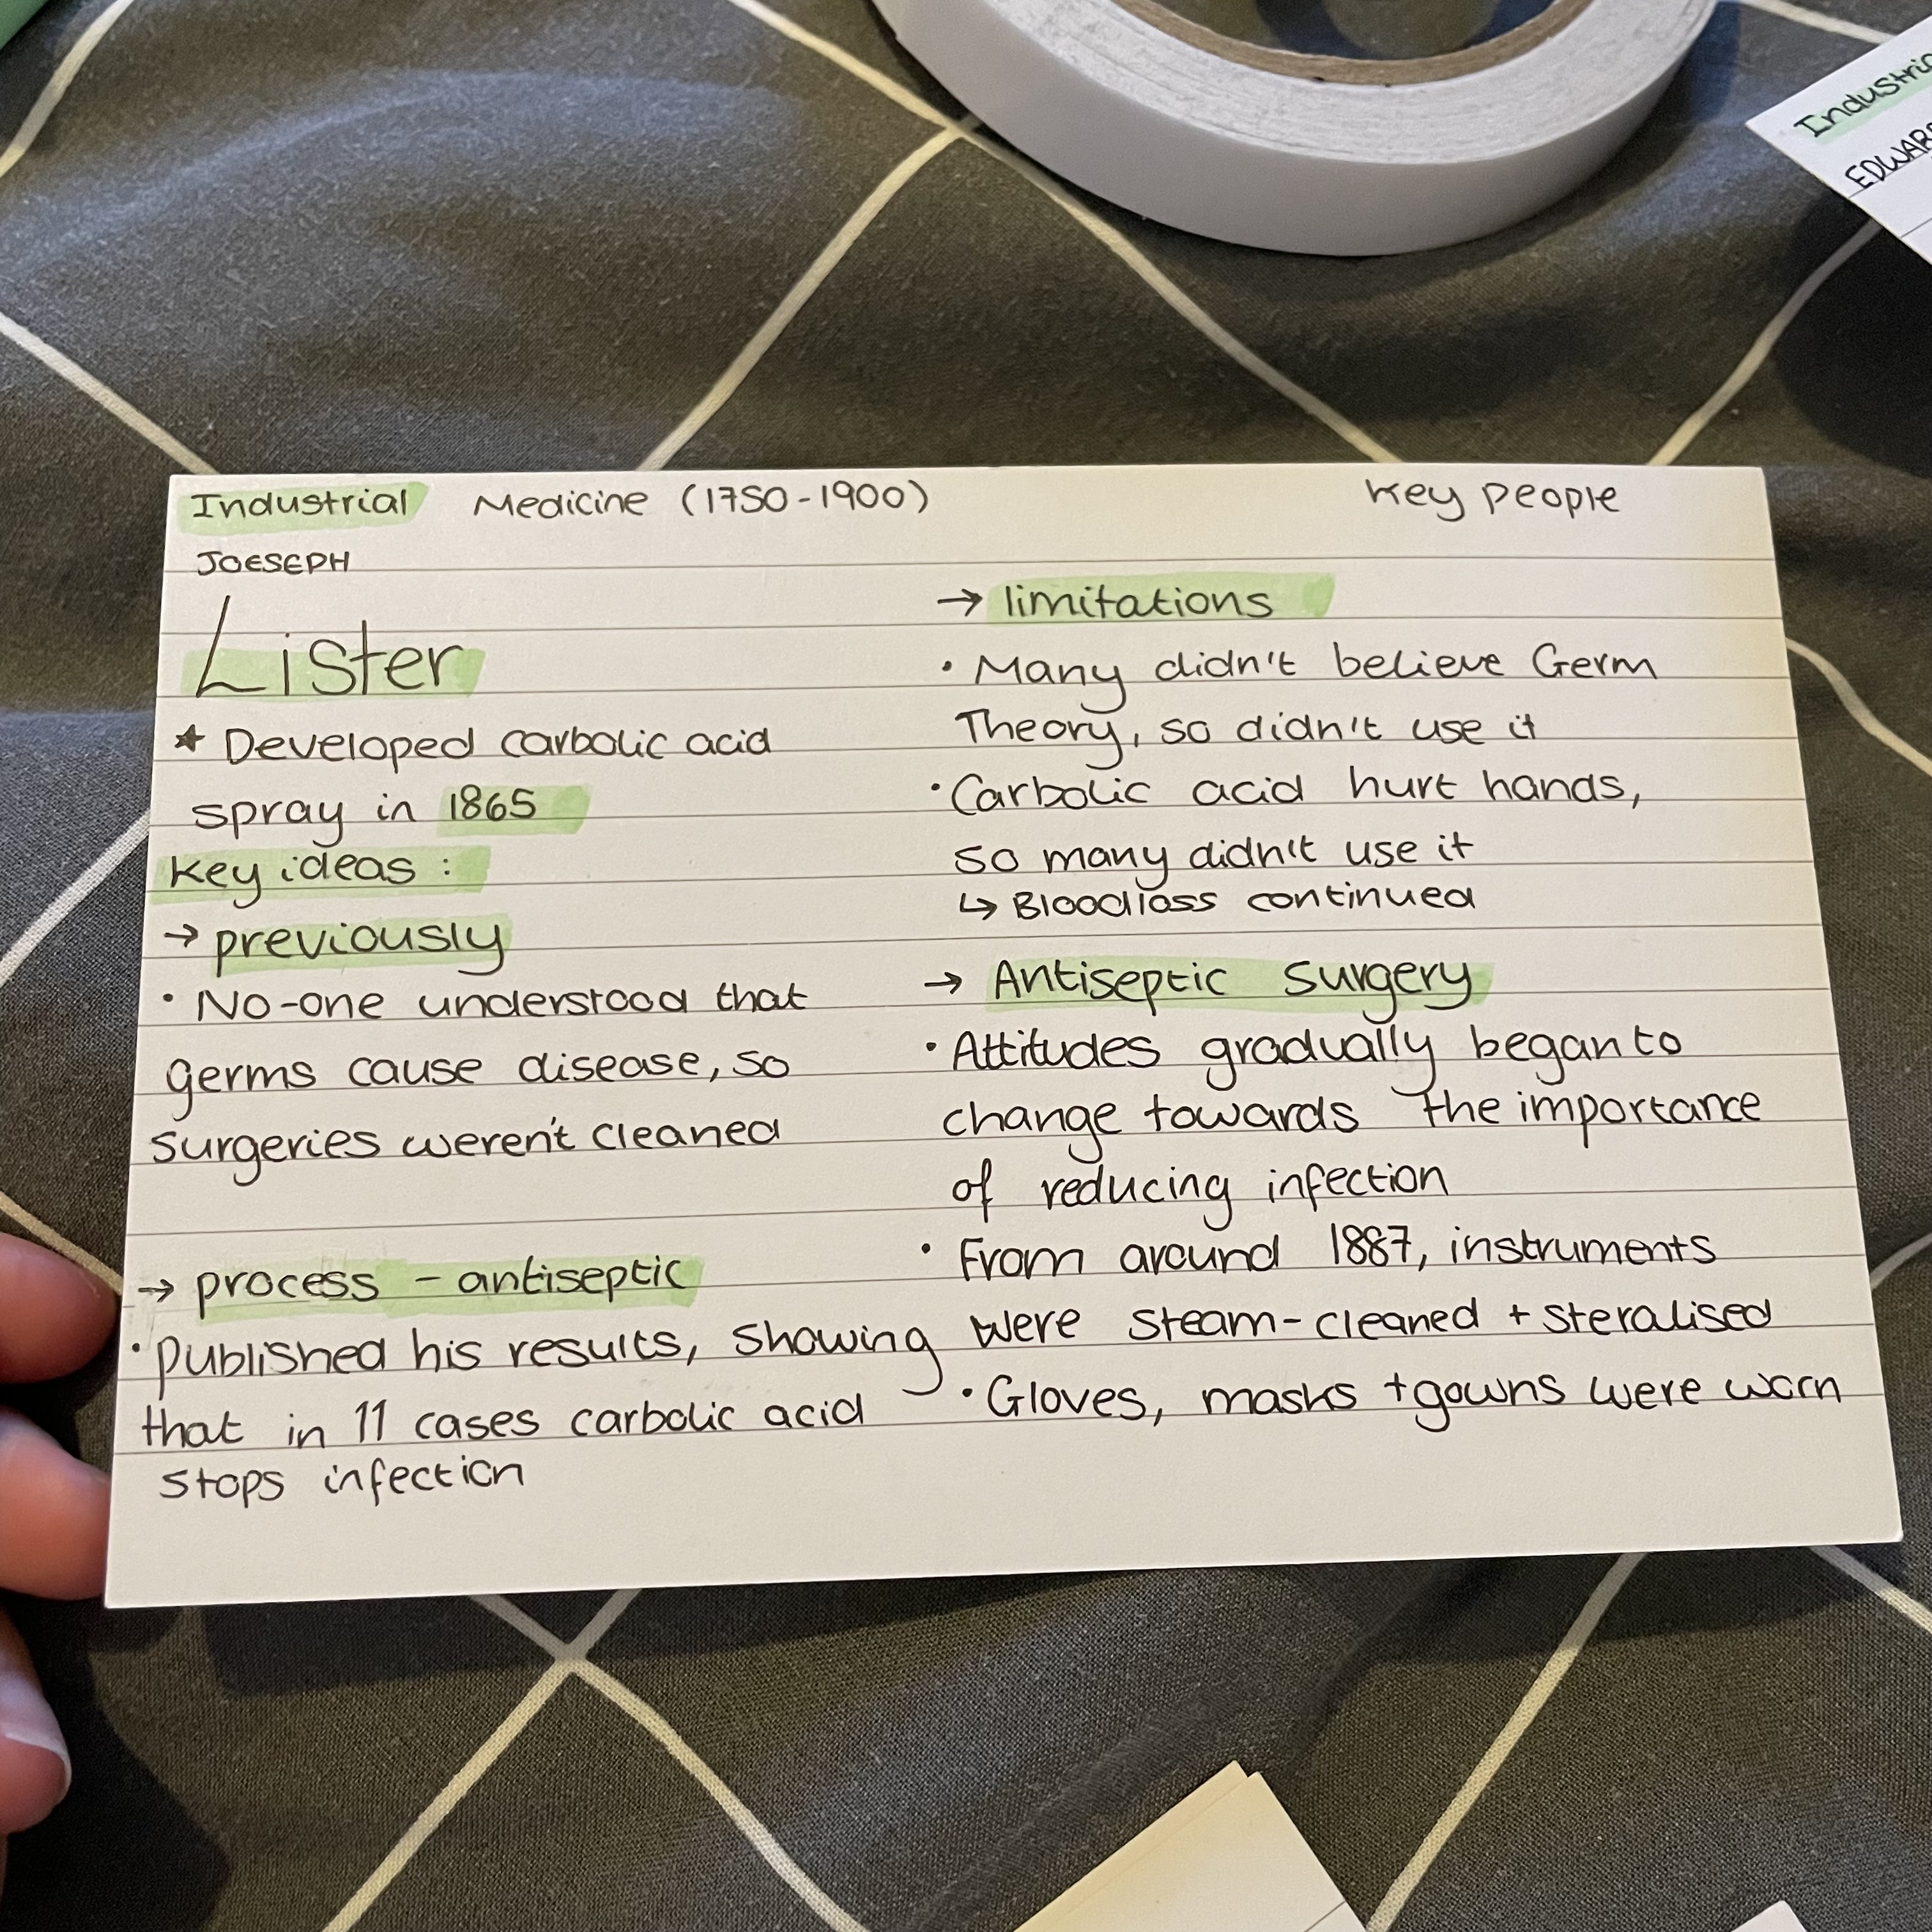 Industrial Medicine (1750-1900)
Key people
JOESEPH
Lister
★ Developed carbolic acid
spray in 1865
Key ideas :
→ previously
• No-one understood that
germs cause disease, so
surgeries weren't cleaned
→ process - antiseptic
• published his results, showing
that in 11 cases carbolic acid
stops infection
→ limitations
• Many didn't believe Germ
Theory, so didn't use it
• Carbolic acid hurt hands,
so many didn't use it
↳ Bloodloss continued
→ Antiseptic surgery
• Attitudes gradually began to
change towards the importance
of reducing infection
• From around 1887, instruments
were steam-cleaned + steralised
• Gloves, masks + gowns were worn